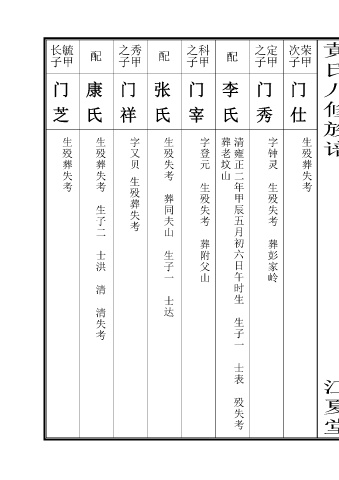 黄氏八修族谱
江夏堂
荣甲
次子
门仕
生殁葬失考
定甲
之子
门秀
字钟灵 生殁失考 葬彭家岭
配
李氏
清雍正二年甲辰五月初六日午时生 生子一 士表 殁失考
葬老坟山
科甲
之子
门宰
字登元 生殁失考 葬附父山
配
张氏
生殁失考 葬同夫山 生子一 士达
秀甲
之子
门祥
字又贝 生殁葬失考
配
康氏
生殁葬失考 生子二 士洪 清 清失考
毓甲
长子
门芝
生殁葬失考